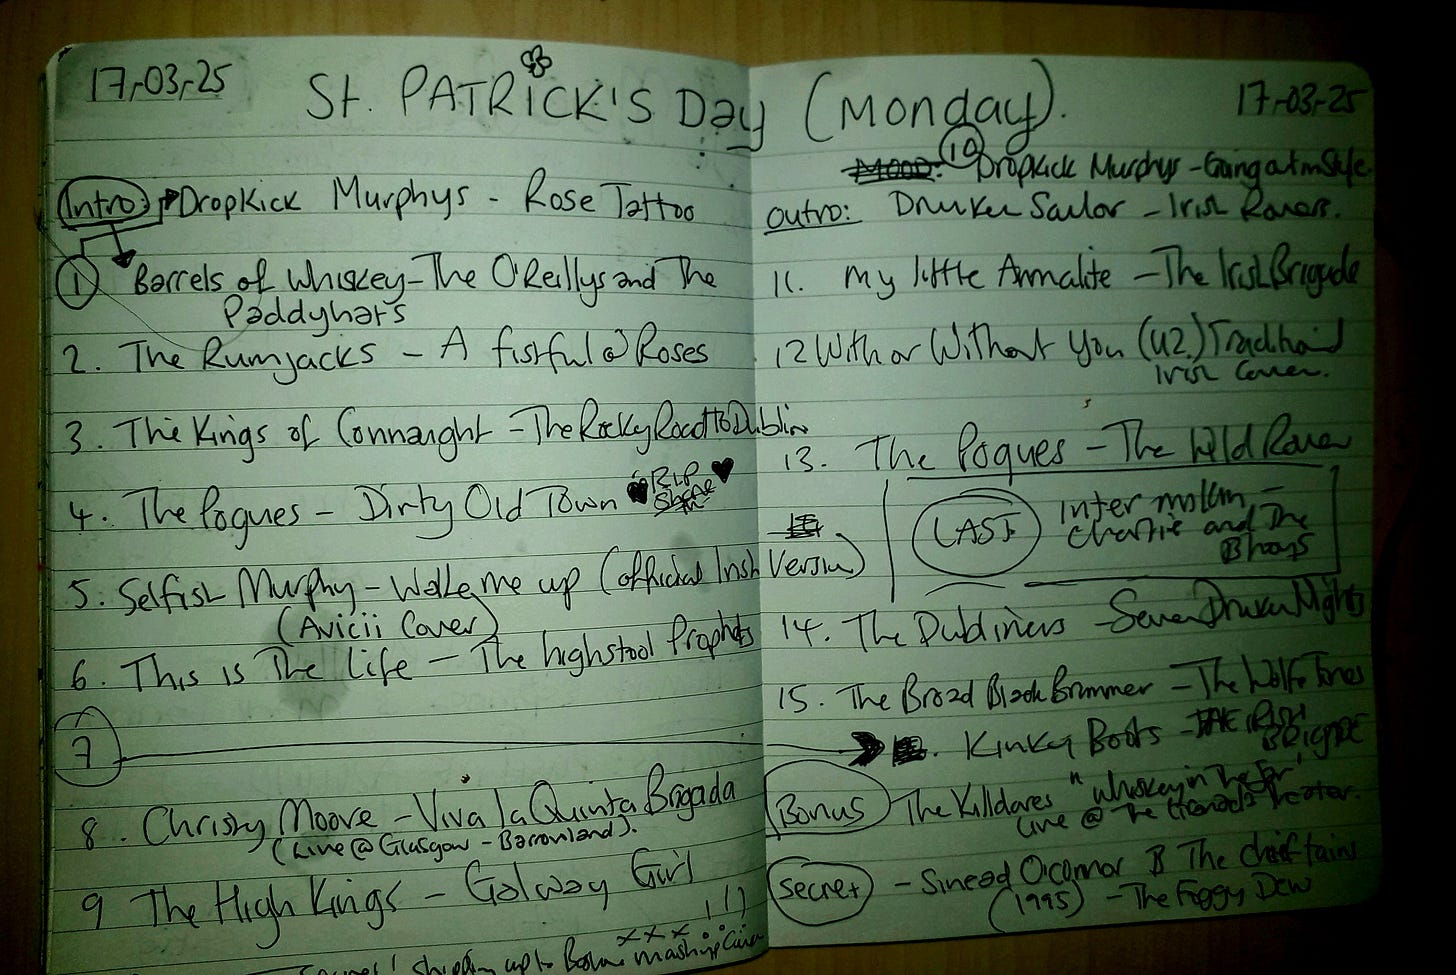 17-03-25
St. PATRICK'S Day (Monday).
17-03-25
Intro DROPKICK Murphys - Rose Tattoo
1 Barrels of Whiskey - The O'Reillys and The
Paddyhats
2. The Rumjacks - A fistful @ Roses
3. The Kings of Connaught - The Rocky Road to Dublin
4. The Pogues - Dirty Old Town RIP
Shane
5. Selfish Murphy - Wake me up (official Irish Version)
(Avicii Cover)
6. This is The Life - The highstool Prophets
7
8. Christy Moore - Viva la Quinta Brigada
(Live @ Glasgow - Barrowland).
9 The High Kings - Galway Girl
shipping up to Boston mashup Cover
MOOD: 10 Dropkick Murphys - Going out in Style
outro: Drunken Sailor - Irish Rovers.
11. My little Armalite - The Irish Brigade
12 With or Without You (U2) Traditional
Irish Cover.
13. The Pogues - The Wild Rover
LAST Intermission -
Charlie and The
Bhoys
14. The Dubliners - Seven Drunken Nights
15. The Broad Black Brimmer - The Wolfe Tones
Kinky Boots - THE IRISH
BRIGADE
Bonus The Killdares "Whiskey in The Jar"
Live @ The Granada Theater.
Secret - Sinead O'Connor & The chieftains
(1995) - The Foggy Dew